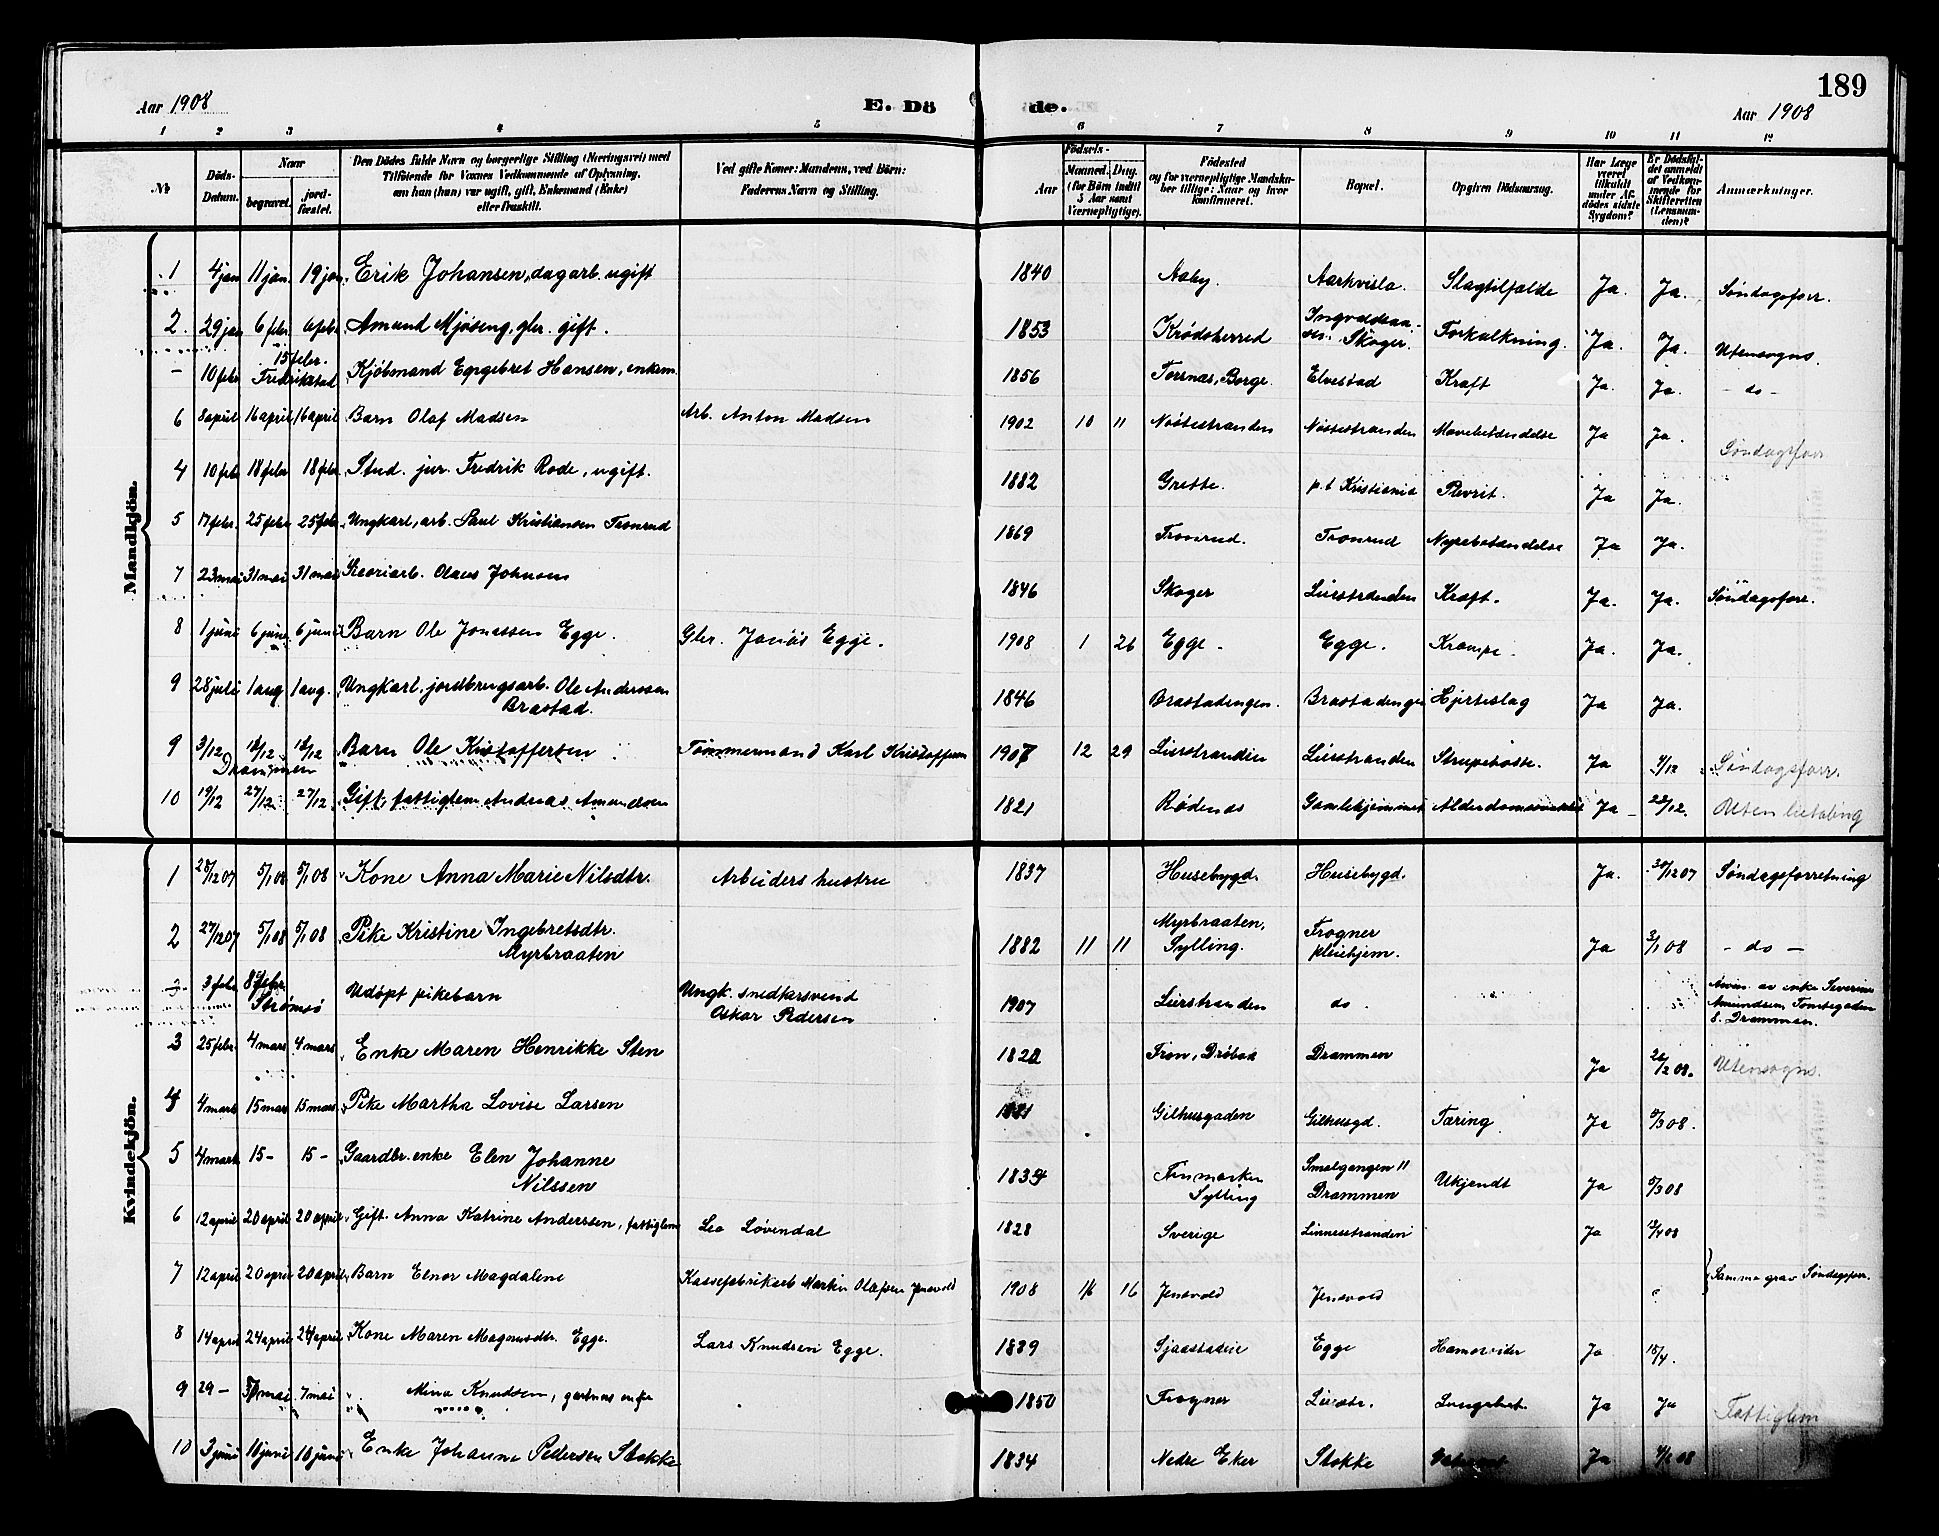 189
Aar 1908
E. Dö
de.
Aar 1908
1 2 3 4 5 6 7 8 9 10 11 12
№
Döds-Datum.
Naar
begravet.
jord-fæstet.
Den Dödes fulde Navn og borgerlige Stilling (Næringsvei) med
Tilföiende for Voxnes Vedkommende af Oplysning,
om han (hun) var ugift, gift, Enkemand (Enke)
eller fraskilt.
Ved gifte Koner: Mandens, ved Börn:
Faderens Navn og Stilling.
Födsels-
Aar
Maaned. Dag.
(for Börn indtil
5 Aar samt
Værnepligtige).
Födested
og for værnepligtige Mandska-
ber tillige: Naar og hvor
konfirmeret.
Bopæl.
Opgiven Dödsaarsag.
Har Læge
været
tilkaldt
under Af-
dödes sidste
Sygdom?
Er Dödsfal-
det anmeldt
af Vedkom-
mende for
Skifteretten
(Lensman-
den)?
Anmærkninger.
Mandkjön.
1 4 jan 11 jan. 19 jan. Erik Johansen, dagarb. ugift 1840 Aaby. Aarkvisla. Slagtilfælde Ja. Ja. Søndagsforr.
2. 29 jan 6 febr. 6 febr. Amund Mjøseng, gbr. gift. 1853 Krødsherred Skoger. Forkalkning. Ja. Ja. Utensogns.
- 10 febr. 15 febr. Fredrikstad Kjøbmand Engebret Hansen, enkem. 1856 Torsnæs, Borge. Elvestad Kræft Ja. Ja. - do -
6 8 april 16 april 16 april Barn Olaf Madsen Arb. Anton Madsen 1902 10 11 Nøstestranden Nøstestranden Mavebetændelse Ja Ja. Søndagsforr
4 10 febr 18 febr 18 febr. Stud. jur. Fredrik Rode, ugift. 1882 Grette. p.t Kristiania Plevrit. Ja Ja.
5 17 febr. 25 febr 25 febr. Ungkarl, arb. Paul Kristiansen Tronrud 1869 Tronrud. Tronrud Nyrebetændelse Ja Ja.
7 23 mai 31 mai 31 mai Olaus Johnsen 1846 Skoger Lierstranden Kræft. Ja. Ja. Søndagsforr.
8 1 juni 6 juni 6 juni Barn Ole Jonassen Egge. Gbr. Jonas Egge. 1908 1 26 Egge. Egge. Krampe. Ja. Ja.
9 28 juli 1 aug 1 avg. Ungkarl, jordbrugsarb. Ole Anderssen
Brastad. 1846 Brastadengen. Brastadengen Hjerteslag Ja Ja.
9 3/12 12/12 12/12 Barn Ole Kristoffersen Tømmermand Karl Kristoffersen 1907 12 29 Lierstranden Lierstranden Strupehoste. Ja 4/12 Søndagsforr.
Drammen
10 19/12 27/12 27/12 Gift, fattiglem Andreas Amundsen 1821 Rødenes Gamlehjemmet Alderdomssvakhet Ja 22/12. Uten betaling
Kvindekjön.
1 28/12 07 5/1 08 5/1 08 Kone Anna Marie Nilsdtr. Arbeiders hustru 1837 Husebygd. Husebygd. Ja. 30/12 07 Søndagsforretning
2 27/12 07 5/1 08 5/1 08 Pike Kristine Ingebretsdtr.
Myrbraaten 1882 11 11 Myrbraaten,
Sylling. Frogner
pleiehjem. Ja 3/1 08 - do -
3 3 febr 8 febr. Strømsø Udøpt pikebarn Ungk. snedkersvend
Oskar Pedersen 1907 Lierstranden do. enke Severine
Amundsen, Tomtegaden
8. Drammen.
3 25 febr. 4 mars 4 mars Enke Maren Henrikke Sten 1822 Fron, Drøbak Drammen Ja 26/2 08. Utensogns.
4 4 mars 15 mars 15 mars Pike Martha Lovise Larsen 1881 Gilhusgaden Gilhusgd. Tæring Ja 6/3 08.
5 4 mars 15 - 15 - Gaardbr. enke Elen Johanne
Nilssen 1834 Finmarken
Sylling Smalgangen 11
Drammen Ukjendt Ja 6/3 08
6 12 april 20 april 20 april Gift. Anna Katrine Anderssen, fattiglem Leo Løvendal 1828 Sverige Linnesstranden Ja 13/4 08
7 12 april 20 april 20 april Barn Elnor Magdalene Kassefabrikarb Martin Olafsen Jensvold 1908 16 Jensvold Jensvold Samme grav Søndagsforr.
8 14 april 24 april 24 april Kone Maren Magnusdtr. Egge. Lars Knudsen Egge. 1839 Gjaastadeie Egge Ja 15/4.
9 29 - 7 mai 7 mai " Mina Knudsen, gartners enke 1850 Frogner Lierstr. Ja Ja Fattiglem
10 3 juni 10 juni 10 juni Enke Johanne Pedersen Stokke 1834 Nedre Eker Stokke Ja 4/6 08